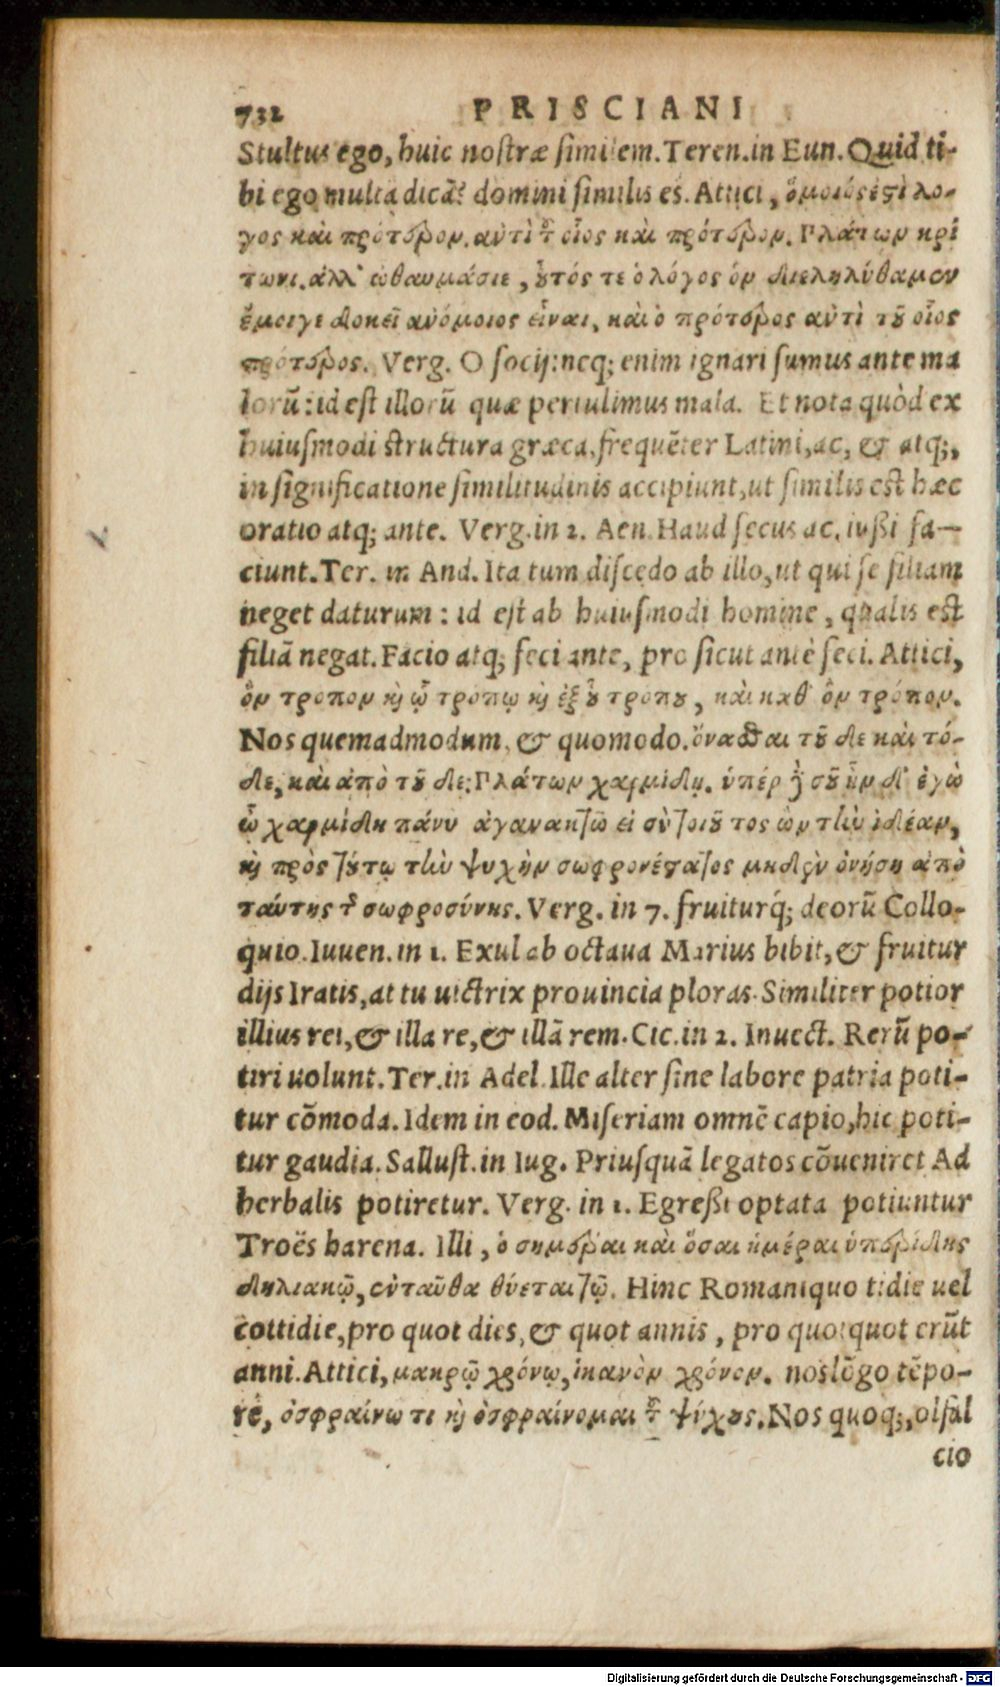 732 PRISCIANI
Stultus ego, huic nostræ similem. Teren. in Eun. Quid ti-
bi ego multa dicā? domini similis es. Attici, ὅμοιός ἐστὶ λο-
γος καὶ πρότερον. αὐτὶ τ͂ οἷος καὶ πρότερον. Πλάτων κρί
τωνι. ἀλλ' ὠθαυμάσιε, ȣ̓τός τε ὁ λόγος ὃν διεληλύθαμεν
ἔμοιγε δοκεῖ ἀνόμοιος εἶναι, καὶ ὁ πρότερος αὐτὶ τȣ͂ οἷος
πρότερος. Verg. O socij: neq; enim ignari sumus ante ma
lorū: id est illorū quæ pertulimus mala. Et nota quòd ex
huiusmodi structura græca, frequēter Latini, ac, & atq;,
in significatione similitudinis accipiunt, ut similis est hæc
oratio atq; ante. Verg. in 2. Aen. Haud secus ac, iussi fa—
ciunt. Ter. in And. Ita tum discedo ab illo, ut qui se filiam
neget daturum: id est ab huiusmodi homine, qualis est
filiā negat. Facio atq; feci ante, pro sicut antè feci. Attici,
ὃν τροπον κὶ ᾧ τρόπῳ κὶ ἐξ ȣ̔͂ τροπȣ, καὶ καθ' ὃν τρόπον.
Nos quemadmodum, & quomodo. ὄνασθαι τȣ͂ δε καὶ τό-
δε, καὶ ἀπὸ τȣ͂ δε: Πλάτων χαρμίδῃ. ὑπέρ γ σȣ͂ ἦν δ' ἐγὼ
ὦ χαρμίδη πάνυ ἀγανακτῶ εἰ σὺ τοιȣ͂ τος ὢν τὴν ἰδέαν,
κὶ πρὸς τȣ́τῳ τὴν ψυχὴν σωφρονέστατος μηδὲν ὀνήσῃ ἀπὸ
ταύτης τ͂ σωφροσύνης. Verg. in 7. fruiturq́; deorū Collo-
quio. Iuuen. in 1. Exul ab octaua Marius bibit, & fruitur
dijs Iratis, at tu uictrix prouincia ploras. Similiter potior
illius rei, & illa re, & illā rem. Cic. in 2. Inuect. Rerū po-
tiri uolunt. Ter. in Adel. Ille alter sine labore patria poti-
tur cōmoda. Idem in eod. Miseriam omnē capio, hic poti-
tur gaudia. Sallust. in Iug. Priusquā legatos cōueniret Ad
herbalis potiretur. Verg. in 1. Egressi optata potiuntur
Troës harena. Illi, ὁ σημέραι καὶ ὅσαι ἡμέραι ὑπερίδης
δηλιακῷ, ἐνταῦθα θύεται τῷ. Hinc Romani quo tidie uel
cottidie, pro quot dies, & quot annis, pro quotquot erūt
anni. Attici, μακρῷ χρόνῳ, ἱκανὸν χρόνον. nos lōgo tēpo-
re, ὀσφραίνω τι κὶ ὀσφραίνομαι τ͂ ψύχȣς. Nos quoq;, olfal
cio
Digitalisierung gefördert durch die Deutsche Forschungsgemeinschaft - DFG